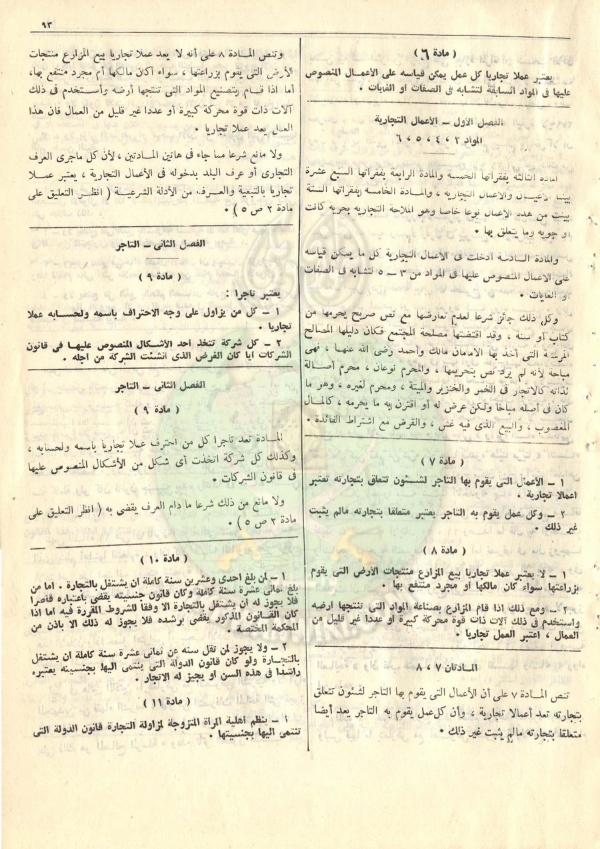 ٩٣
( مادة ٦ )
يعتبر عملا تجاريا كل عمل يمكن قياسه على الأعمال المنصوص
عليها فى المواد السابقة لتشابه فى الصفات أو الغايات .
الفصل الأول – الأعمال التجارية
المواد ٣ ، ٤ ، ٥ ، ٦
المادة الثالثة بفقراتها الخمسة والمادة الرابعة بفقراتها السبع عشرة
بينتا الأعمال التجارية ، والمادة الخامسة بفقراتها الستة
بينت من هذه الأعمال نوعا خاصا وهو الملاحة التجارية بحرية كانت
أو جوية وما يتعلق بها .
والمادة السادسة أدخلت فى الأعمال التجارية كل ما يمكن قياسه
على الأعمال المنصوص عليها فى المواد من ٣ – ٥ لتشابه فى الصفات
أو الغايات .
وكل ذلك جائز شرعا لعدم تعارضها مع نص صريح يحرمها من
كتاب أو سنة ، وقد اقتضتها مصلحة المجتمع فكان دليلها المصالح
المرسلة التى أخذ بها الامامان مالك وأحمد رضى الله عنهما ، فهى
مباحة لأنه لم يرد نص بتحريمها ، والمحرم نوعان ، محرم أصالة
لذاته كالاتجار فى الخمر والخنزير والميتة ، ومحرم لغيره ، وهو ما
كان فى أصله مباحا ولكن عرض له أو اقترن به ما يحرمه ، كالمال
المغصوب ، والبيع الذى فيه غش ، والقرض مع اشتراط الفائدة .
( مادة ٧ )
١ – الأعمال التى يقوم بها التاجر لشئون تتعلق بتجارته تعتبر
أعمالا تجارية .
٢ – وكل عمل يقوم به التاجر يعتبر متعلقا بتجارته مالم يثبت
غير ذلك .
( مادة ٨ )
١ – لا يعتبر عملا تجاريا بيع المزارع منتجات الأرض التى يقوم
بزراعتها سواء كان مالكها أو مجرد منتفع بها .
٢ – ومع ذلك اذا قام المزارع بصناعة المواد التى تنتجها أرضه
واستخدم فى ذلك آلات ذات قوة محركة كبيرة أو عددا غير قليل من
العمال ، اعتبر العمل تجاريا .
المادتان ٧ ، ٨
تنص المادة ٧ على أن الأعمال التى يقوم بها التاجر لشئون تتعلق
بتجارته تعد أعمالا تجارية ، وأن كل عمل يقوم به التاجر يعد أيضا
متعلقا بتجارته مالم يثبت غير ذلك .
وتنص المادة ٨ على أنه لا يعد عملا تجاريا بيع المزارع منتجات
الأرض التى يقوم بزراعتها ، سواء أكان مالكها أم مجرد منتفع بها ،
أما اذا قام بتصنيع المواد التى تنتجها أرضه وأستخدم فى ذلك
آلات ذات قوة محركة كبيرة أو عددا غير قليل من العمال فان هذا
العمل يعد عملا تجاريا .
ولا مانع شرعا مما جاء فى هاتين المادتين ، لأن كل ماجرى العرف
التجارى أو عرف البلد بدخوله فى الأعمال التجارية ، يعتبر عملا
تجاريا بالتبعية والعرف من الأدلة الشرعية ( انظر التعليق على
مادة ٢ ص ٥ ) .
الفصل الثانى – التاجر
( مادة ٩ )
يعتبر تاجرا :
١ – كل من يزاول على وجه الاحتراف باسمه ولحسابه عملا
تجاريا .
٢ – كل شركة تتخذ احد الأشكال المنصوص عليها فى قانون
الشركات أيا كان الغرض الذى أنشئت الشركة من أجله .
الفصل الثانى – التاجر
( مادة ٩ )
المادة تعد تاجرا كل من احترف عملا تجاريا باسمه ولحسابه ،
وكذلك كل شركة اتخذت أى شكل من الأشكال المنصوص عليها
فى قانون الشركات .
ولا مانع من ذلك شرعا ما دام العرف يقضى به ( انظر التعليق على
مادة ٢ ص ٥ ) .
( مادة ١٠ )
١ – لمن بلغ احدى وعشرين سنة كاملة أن يشتغل بالتجارة . أما من
بلغ ثمانى عشرة سنة وكان قانون جنسيته يقضى باعتباره قاصرا
فلا يجوز له أن يشتغل بالتجارة الا وفقا للشروط المقررة فيه أما اذا
كان القانون المذكور يقضى برشده فلا يجوز له ذلك الا باذن من
المحكمة المختصة .
٢ – ولا يجوز لمن تقل سنه عن ثمانى عشرة سنة كاملة أن يشتغل
بالتجارة ولو كان قانون الدولة التى ينتمى اليها بجنسيته يعتبره
راشدا فى هذه السن أو يجيز له الاتجار .
( مادة ١١ )
١ – ينظم أهلية المرأة المتزوجة لمزاولة التجارة قانون الدولة التى
تنتمى اليها بجنسيتها .